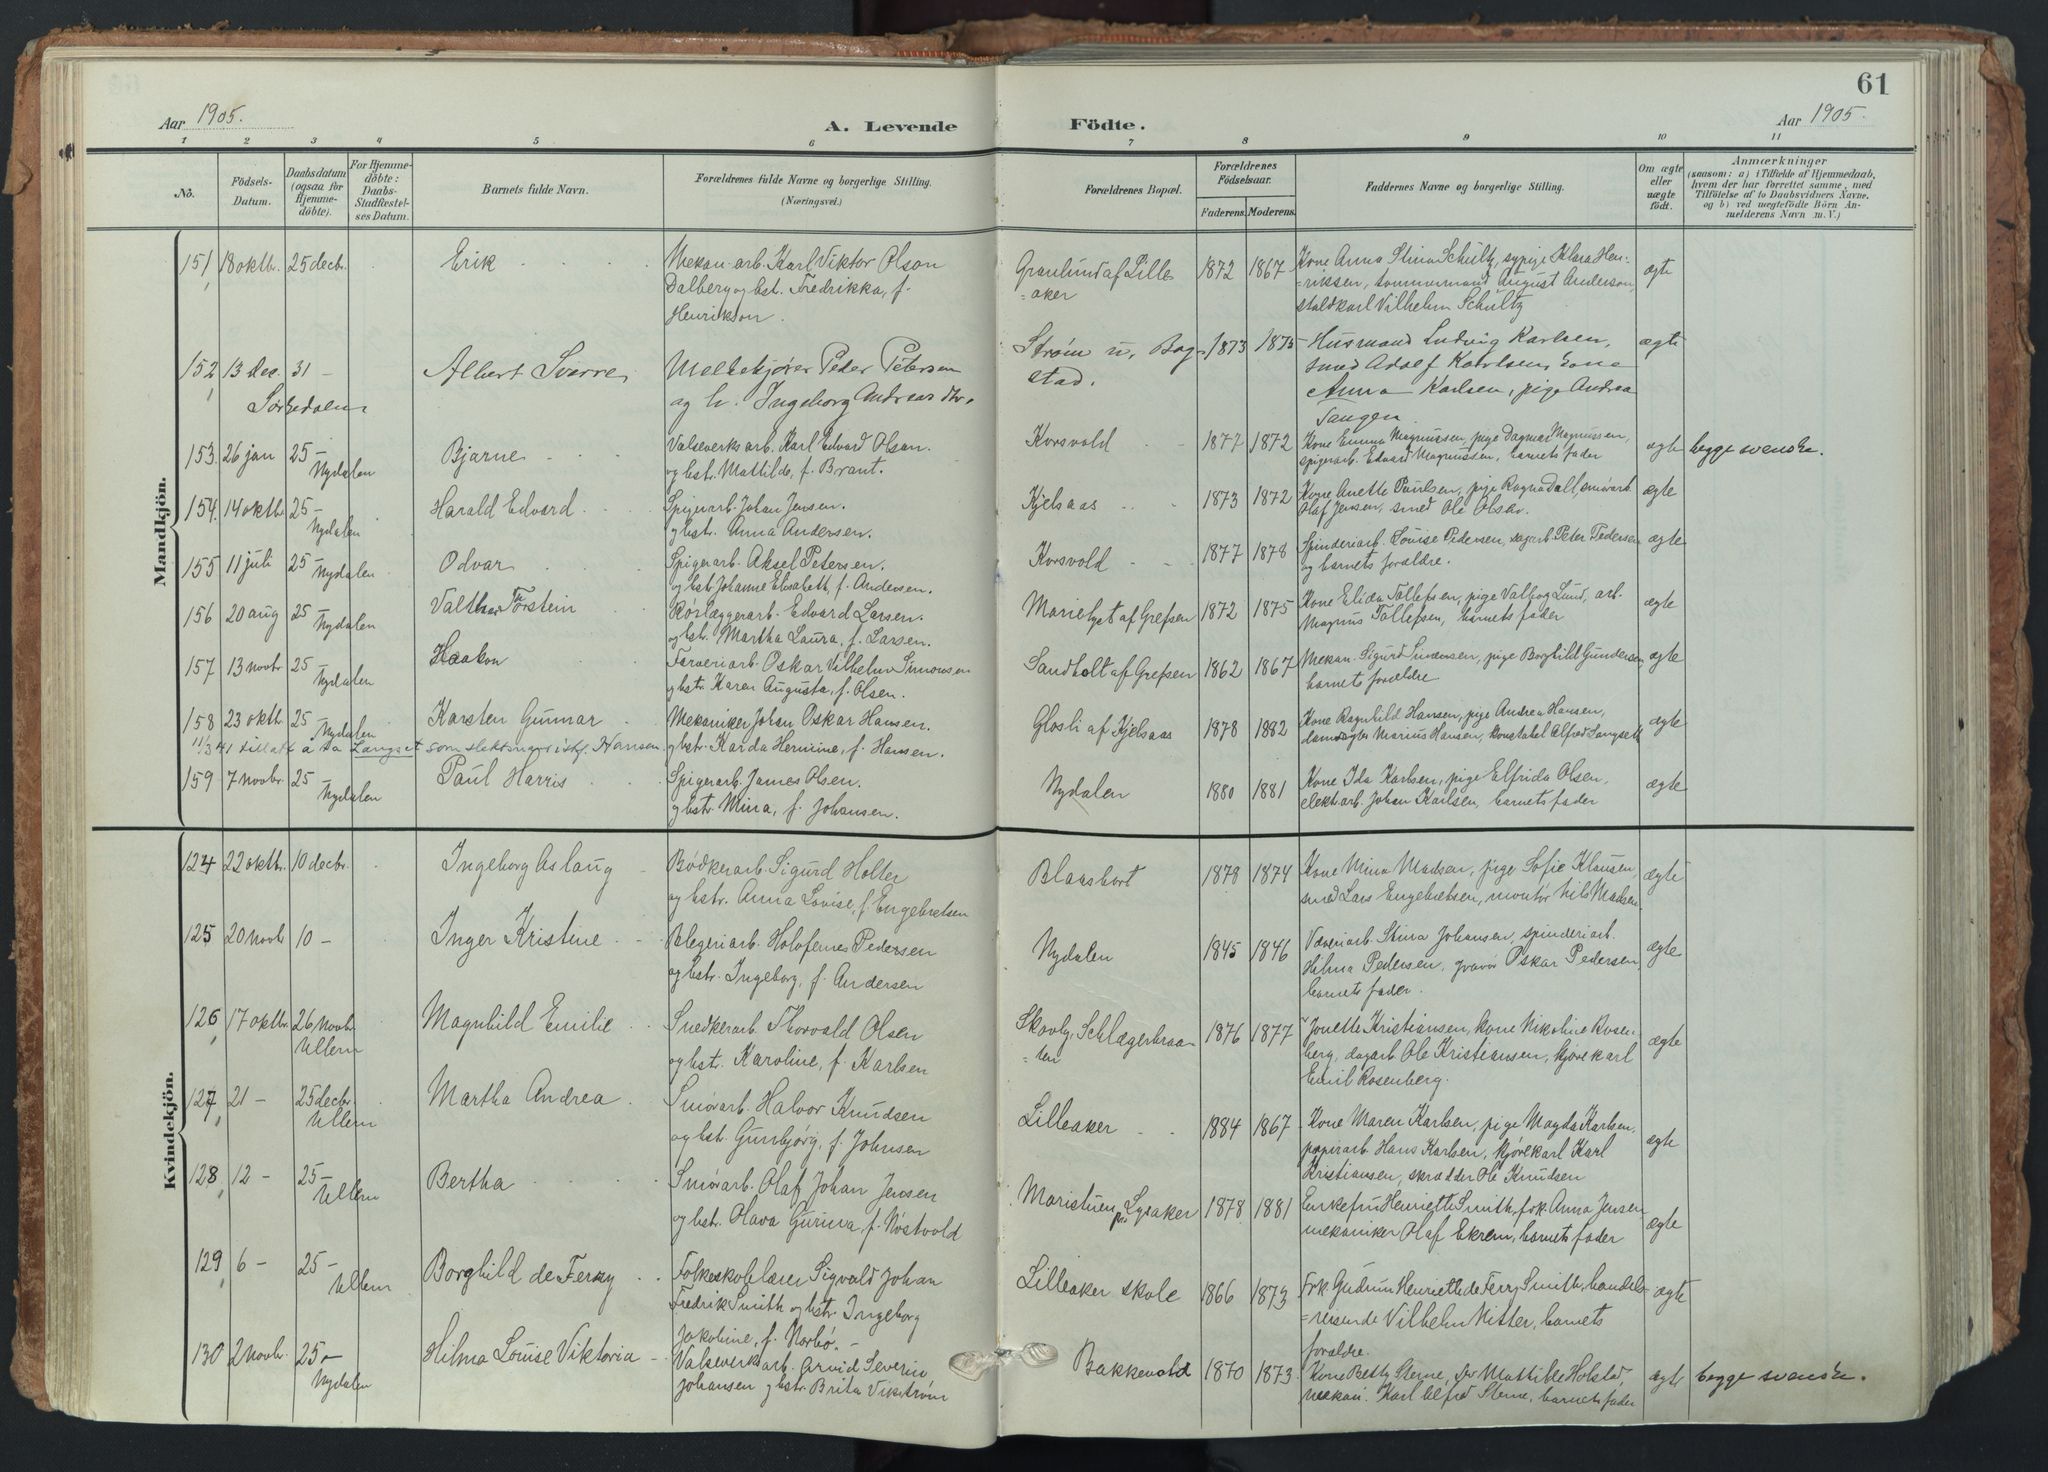 61
Aar 1905.
A. Levende Födte.
Aar 1905.
1 2 3 4 5 6 7 8 9 10 11
No.
Födsels-Datum.
Daabsdatum (ogsaa for Hjemme-döbte).
For Hjemme-döbte: Daabs-Stadfæstel-ses Datum.
Barnets fulde Navn.
Forældrenes fulde Navne og borgerlige Stilling.
(Næringsvei.)
Forældrenes Bopæl.
Forældrenes Födselsaar.
Faderens. Moderens.
Faddernes Navne og borgerlige Stilling.
Om ægte eller uægte födt.
Anmærkninger
(saasom: a) i Tilfælde af Hjemmedaab,
hvem der har forrettet samme, med
Tilföielse af to Daabsvidners Navne,
og b) ved uægtefödte Börn An-
melderens Navn m. V.)
Mandkjön.
151, 18 oktb. 25 decb. Erik Mekan. arb. Karl Viktor Olson
Dalberg og hst. Fredrikka, f.
Henrikson.
Granlund af Lille
=aker
1872 1867
Kone Anna Stina Schultz, sypige Klara Hen-
=riksen, tømmermand August Anderson,
staldkarl Vilhelm Schultz
ægte
152, 13 dec. 31 – Albert Sverre Melkekjører Peder Petersen
Sørkedalen
og h. Ingeborg Andreasdtr.
Strøm u. Bog-
stad.
1873 1875
Husmand Ludvig Karlsen,
smed Adolf Karlsen, kone
Anna Karlsen, pige Andrea
Tangen
ægte
153. 26 jan 25 – Nydalen Bjarne Valseverksarb. Karl Edvard Olsen.
og hst. Mattilde, f. Brant.
Korsvold
1877 1872
Kone Emma Magnussen, pige Dagmar Magnussen,
spigerarb. Edvard Magnussen, barnets fader
ægte begge svenske.
154. 14 oktb. 25 – Nydalen Harald Edvard Spigerarb. Johan Jensen.
og hst. Anna Andersen.
Kjelsaas
1873 1872
Kone Anette Paulsen, pige Ragna Dall, smørarb.
Olaf Jensen, smed Ole Olsen.
ægte
155 11 juli 25 – Nydalen Odvar Spigerarb. Aksel Petersen.
og hst. Johanne Elisabeth, f. Andersen.
Korsvold
1877 1878
Spinderiarb. Louise Pedersen, sagarb. Peter Pedersen
og barnets forældre.
ægte
156 20 aug 25 – Nydalen Valther Torstein Rørlæggerarb. Edvard Larsen.
og hst. Martha Laura, f. Larsen.
Marielyst af Grefsen
1872 1875
Kone Elida Tollefsen, pige Valborg Lund, arb.
Magnus Tollefsen, barnets fader
ægte
157 13 novbr. 25 – Nydalen Haakon Farveriarb. Oskar Vilhelm Simonsen
og hst. Karen Augusta, f. Olsen.
Sandholt af Grefsen
1862 1867
Mekan. Sigurd Simensen, pige Borghild Gundersen
barnets forældre
ægte
158 23 oktb. 25 – Nydalen Karsten Gunnar Mekaniker Johan Oskar Hansen.
11/3 41 tillatt å ta Langset som slektsnavn istf. Hansen.
og hst. Karda Hermine, f. Hansen.
Glosli af Kjelsaas
1878 1882
Kone Ragnhild Hansen, pige Andrea Hansen,
Marius Hansen, konstabel Alfred Langseth
ægte
159 7 novbr. 25 – Nydalen Paul Harris Spigerarb. James Olsen.
og hst. Mina, f. Johansen.
Nydalen
1880 1881
Kone Ida Karlsen, pige Elfrida Olsen,
elekt.arb. Johan Karlsen, barnets fader
ægte
Kvindekjön.
124 22 oktb. 10 decbr. Ingeborg Aslaug Bødkerarb. Sigurd Holter
og hst. Anna Lovise, f. Engebretsen
Blaasbort
1878 1874
Kone Mina Madsen, pige Sofie Klausen,
smed Lars Engebretsen, montør Nils Madsen
ægte
125 20 novb. 10 – Inger Kristine Blegeriarb. Holofernes Pedersen
og hst. Ingeborg, f. Andersen
Nydalen
1845 1846
Væveriarb. Stina Johansen, spinderiarb.
Hilma Pedersen, gravør Oskar Pedersen,
barnets fader.
ægte
126, 17 oktbr. 26 novb. Ullern Magnhild Emilie Snedkerarb. Thorvald Olsen
og hst. Karoline, f. Karlsen
Skovly, Schlagerbraa-
=ten
1876 1877
Jonette Kristiansen, kone Nikoline Rosen-
berg, dagarb. Ole Kristiansen, kjørekarl
Emil Rosenberg.
ægte
127, 21 – 25 decbr. Ullern Martha Andrea Smørarb. Halvor Knudsen
og hst. Gunbjørg, f. Johnsen
Lilleaker
1884 1867
Kone Maren Karlsen, pige Magda Karlsen,
papirarb. Hans Karlsen, kjørekarl Karl
Kristiansen, skrædder Ole Knudsen
ægte
128, 12 – 25 – Ullern Bertha Smørarb. Olaf Johan Jensen
og hst. Hava Gurina, f. Nøstvold
Maristuen pr. Lysaker
1878 1881
Enkefru Henriette Smith, frk. Anna Jensen
mekaniker Olaf Ekrem, barnets fader
ægte
129, 6 – 25 – Ullern Borghild de Ferry Folkeskolelærer Sigvald Johan
Fredrik Smith og hst. Ingeborg
Jakobine, f. Norbø.
Lilleaker skole
1866 1873
Frk. Gudrun Henriette de Ferry Smith, handels-
=reisende Vilhelm Nitter, barnets
forældre.
ægte
130 2 novbr. 25 – Nydalen Hilma Louise Viktoria Valseverksarb. Arvid Severin
Johansen og hst. Brita Vikstrøm
Bakkevold
1870 1873
Kone Betty Sterne, Mattilde Holstad,
mekan. Karl Alfred Sterne, barnets fader
ægte begge svenske.